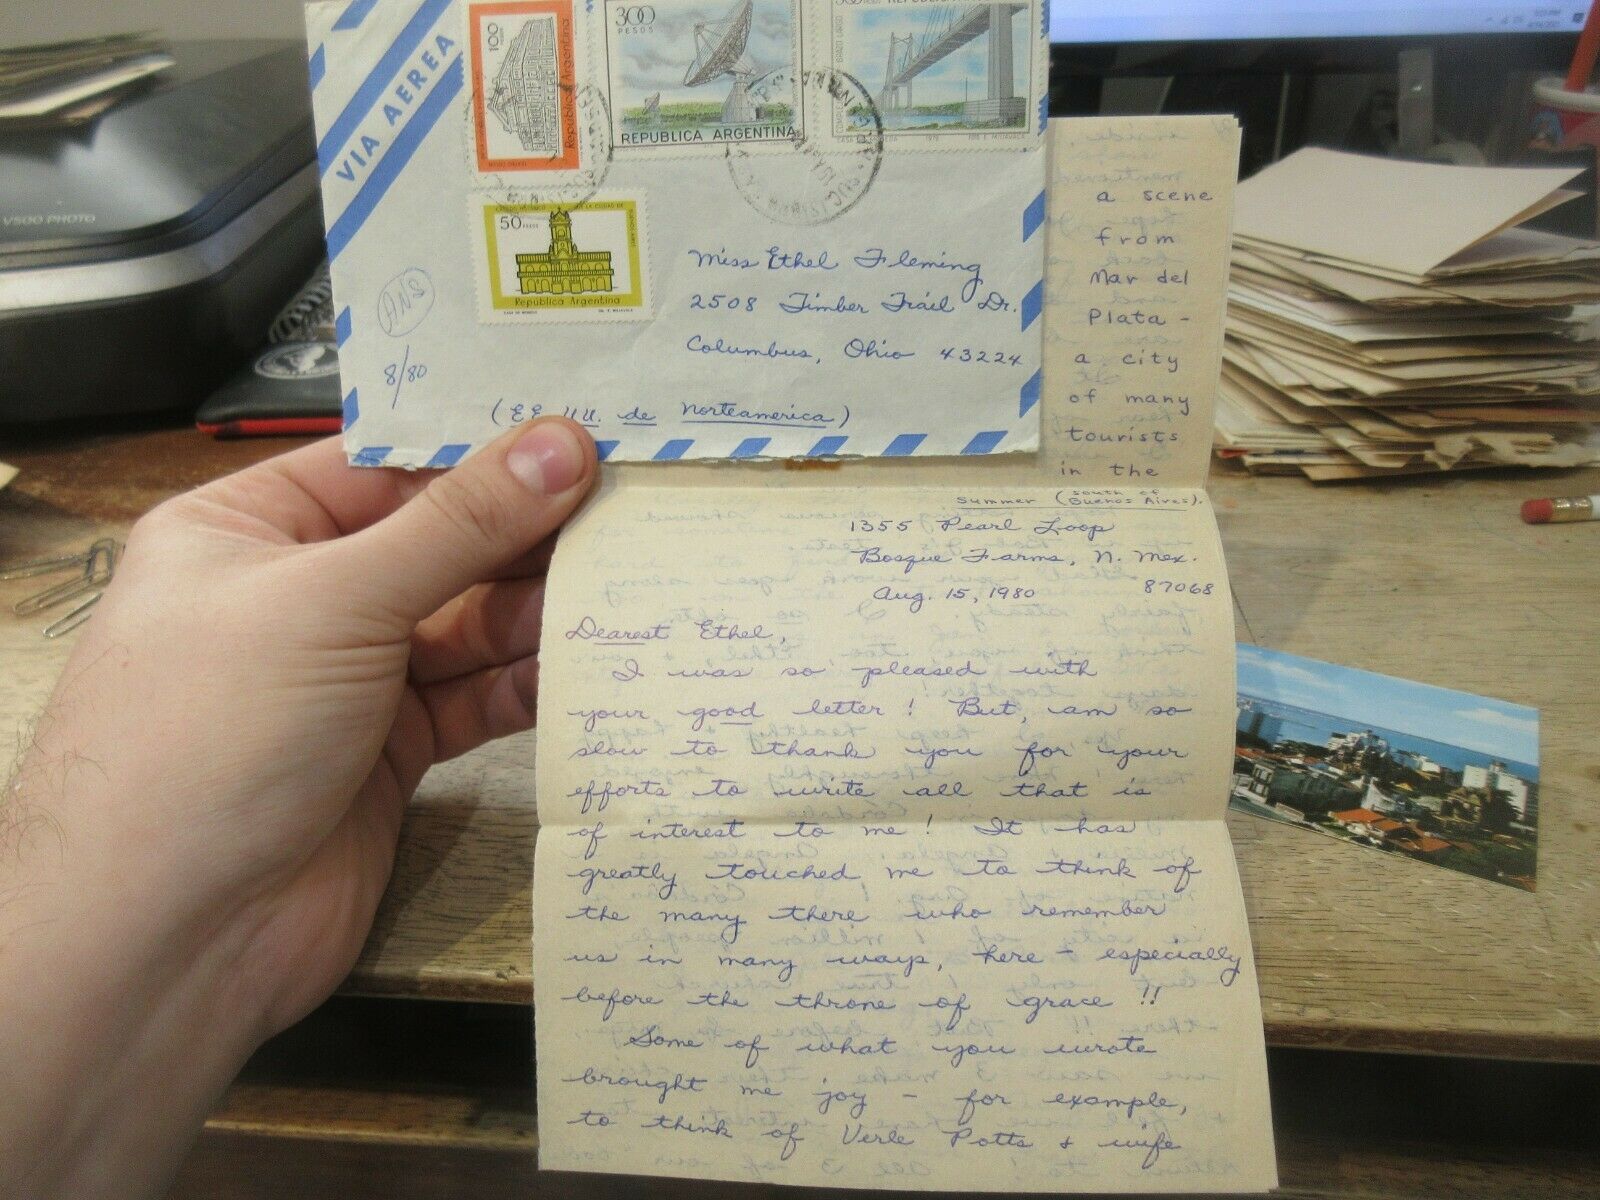 V500 PHOTO
VIA AEREA
100
República Argentina
300
PESOS
REPUBLICA ARGENTINA
REPUBLICA
50
PESOS
República Argentina
CASA DE MONEDA
ANS
8/80
Miss Ethel Fleming
2508 Timber Trail Dr.
Columbus, Ohio 43224
(EE. UU. de Norteamerica)
a scene
from
Mar del
Plata -
a city
of many
tourists
in the
summer (south of Buenos Aires).
1355 Pearl Loop
Bosque Farms, N. Mex.
87068
Aug. 15, 1980
Dearest Ethel,
I was so pleased with
your good letter! But, am so
slow to thank you for your
efforts to write all that is
of interest to me! It has
greatly touched me to think of
the many there who remember
us in many ways, here - especially
before the throne of grace!!
Some of what you wrote
brought me joy - for example,
to think of Verle Potts & wife